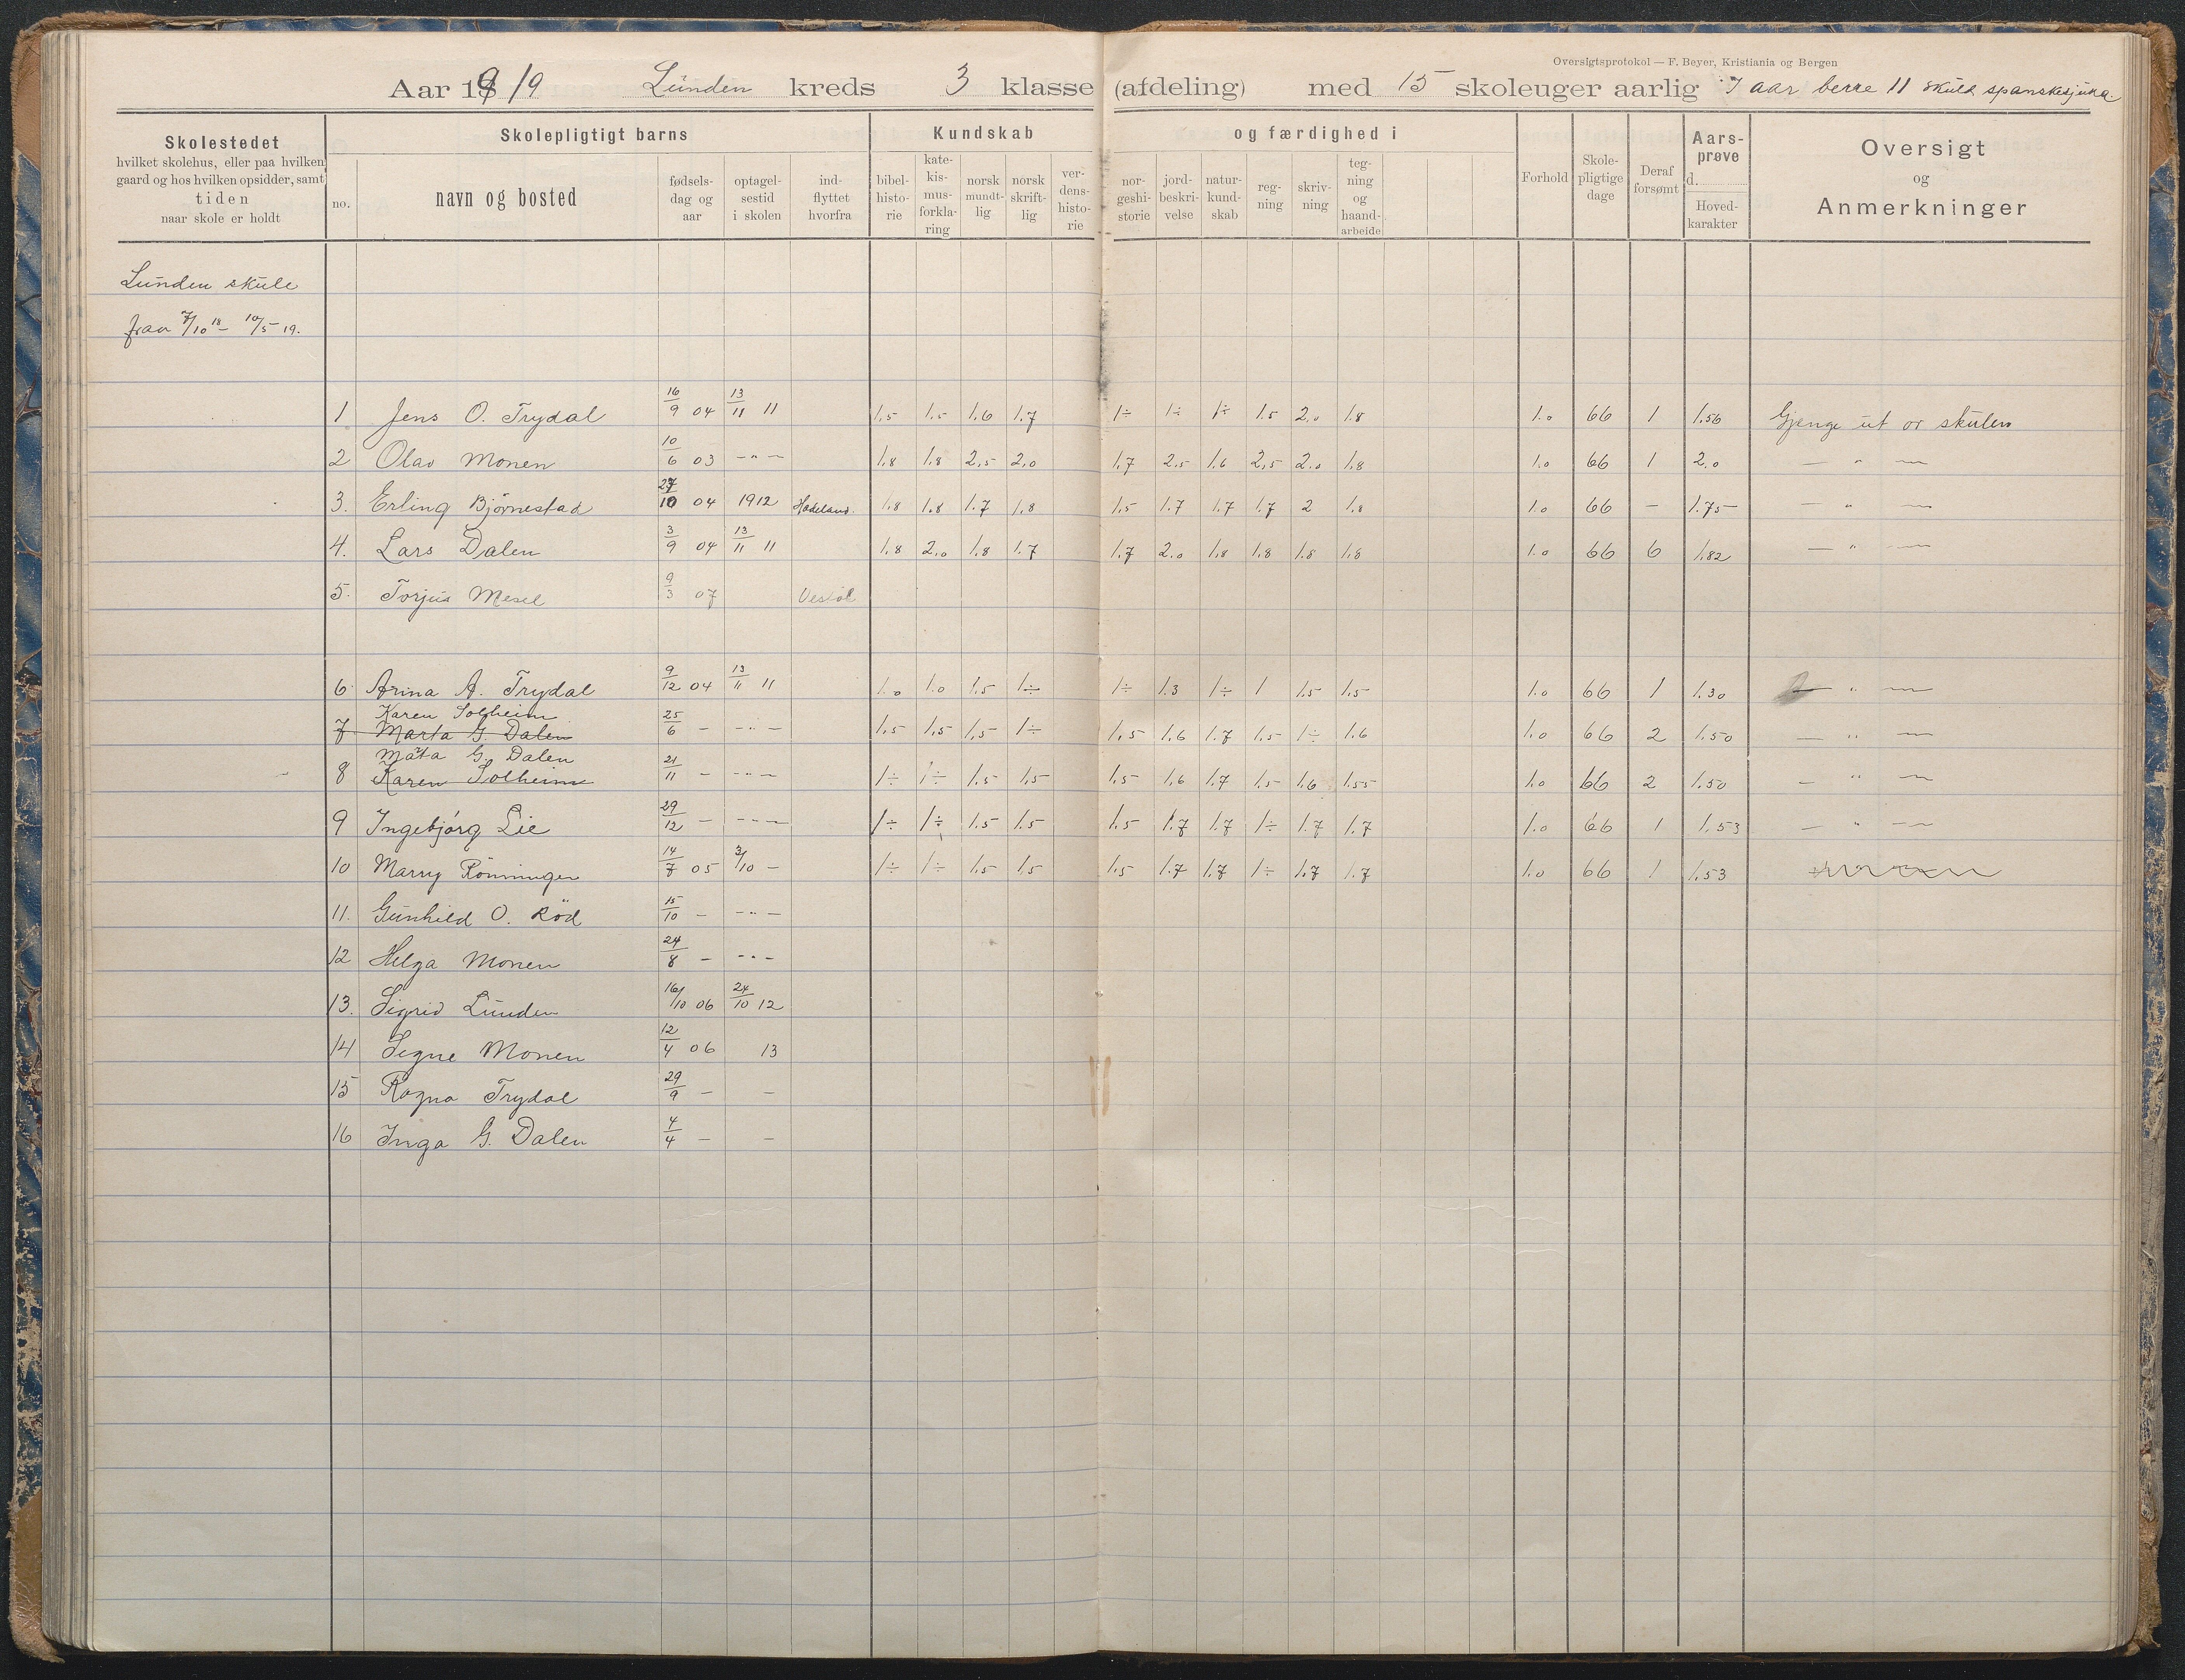 Oversigtsprotokol — F. Beyer, Kristiania og Bergen
Aar 1919 Lunden kreds 3 klasse (afdeling) med 15 skoleuger aarlig I aar berre 11 skuld spanskesjuka.
Skolestedet
hvilket skolehus, eller paa hvilken
gaard og hos hvilken opsidder, samt
tiden
naar skole er holdt
Skolepligtigt barns
no.
navn og bosted
fødsels-
dag og
aar
optagel-
sestid
i skolen
ind-
flyttet
hvorfra
Kundskab og færdighed i
bibel-
histo-
rie
kate-
kis-
mus-
forkla-
ring
norsk
mundt-
lig
norsk
skrift-
lig
ver-
dens-
histo-
rie
nor-
geshi-
storie
jord-
beskri-
velse
natur-
kund-
skab
reg-
ning
skriv-
ning
teg-
ning
og
haand-
arbeide
Forhold
Skole-
pligtige
dage
Deraf
forsømt
Aars-
prøve
d.
Hoved-
karakter
Oversigt
og
Anmerkninger
Lunden skule
fraa 7/10 18 – 10/5 19.
1 Jens O. Trydal 16/9 04 13/11 11 1.5 1.5 1.6 1.7 1÷ 1÷ 1÷ 1.5 2.0 1.8 1.0 66 1 1.56 Gjenge ut or skulen
2 Olav Monen 10/6 03 – " – 1.8 1.8 2.5 2.0 1.7 2.5 1.6 2.5 2.0 1.8 1.0 66 1 2.0 — " —
3. Erling Bjørnestad 27/10 04 1912 Hadeland. 1.8 1.8 1.7 1.8 1.5 1.7 1.7 1.7 2 1.8 1.0 66 – 1.75 — " —
4. Lars Dalen 3/9 04 13/11 11 1.8 2.0 1.8 1.7 1.7 2.0 1.8 1.8 1.8 1.8 1.0 66 6 1.82 — " —
5. Torjus Mesel 9/3 07 Vestøl
6. Arina A. Trydal 9/12 04 13/11 11 1.0 1.0 1.5 1÷ 1÷ 1.3 1÷ 1 1.5 1.5 1.0 66 1 1.30 — " —
Karen Solheim
7. Marta G. Dalen 25/6 – – " – 1.5 1.5 1.5 1÷ 1.5 1.6 1.7 1.5 1÷ 1.6 1.0 66 2 1.50 — " —
Mäta G. Dalen
8 Karen Solheim 21/11 – – " – 1÷ 1÷ 1.5 1.5 1.5 1.6 1.7 1.5 1.6 1.55 1.0 66 2 1.50 — " —
9 Ingebjørg Lie 29/12 – – " – 1÷ 1÷ 1.5 1.5 1.5 1.7 1.7 1÷ 1.7 1.7 1.0 66 1 1.53 — " —
10 Marry Rönningen 14/7 05 3/10 – 1÷ 1÷ 1.5 1.5 1.5 1.7 1.7 1÷ 1.7 1.7 1.0 66 1 1.53
11. Gunhild O. Röd 15/10 – – " –
12 Helga Monen 24/8 – – " –
13. Sigrid Lunden 16/10 06 24/10 12
14 Signe Monen 12/4 06 13
15 Ragna Trydal 29/9 – –
16 Inga G. Dalen 4/4 – –